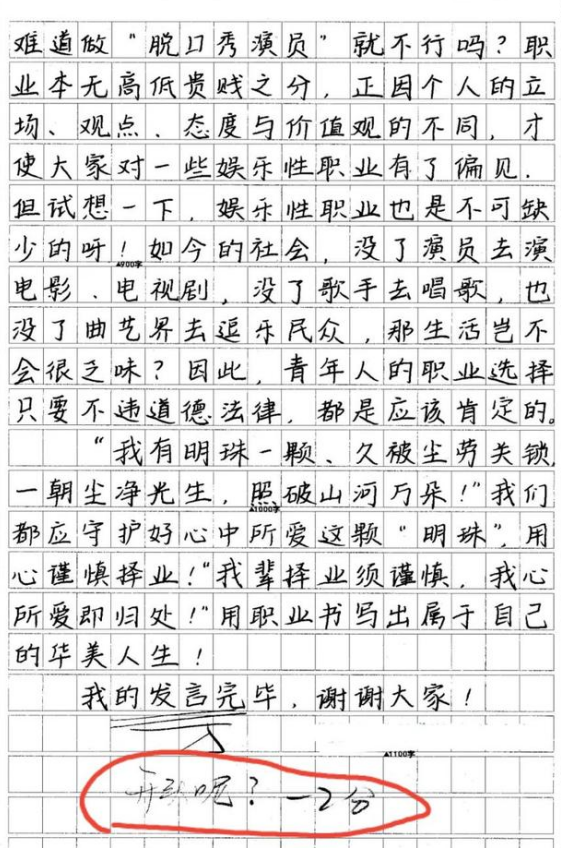 难道做“脱口秀演员”就不行吗？职
业本无高低贵贱之分，正因个人的立
场、观点、态度与价值观的不同，才
使大家对一些娱乐性职业有了偏见．
但试想一下，娱乐性职业也是不可缺
少的呀！如今的社会，没了演员去演
▲900字
电影、电视剧，没了歌手去唱歌，也
没了曲艺界去逗乐民众，那生活岂不
会很乏味？因此，青年人的职业选择
只要不违道德法律，都是应该肯定的。
“我有明珠一颗、久被尘劳关锁，
一朝尘净光生，照破山河万朵！”我们
▲1000字
都应守护好心中所爱这颗“明珠”，用
心谨慎择业！“我辈择业须谨慎，我心
所爱即归处！”用职业书写出属于自己
的华美人生！
我的发言完毕，谢谢大家！
▲1100字
呢？一2分